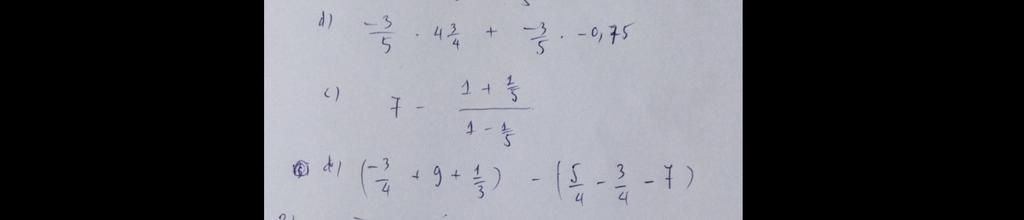 d) -3/5 · 4 3/4 + -3/5 · -0,75
c) 7 - (1 + 1/5)/(1 - 1/5)
d) (-3/4 + 9 + 1/3) - (5/4 - 3/4 - 7)